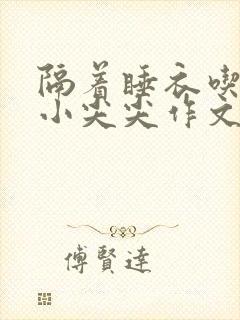 隔着睡衣喫
小尖尖作文
傅賢達